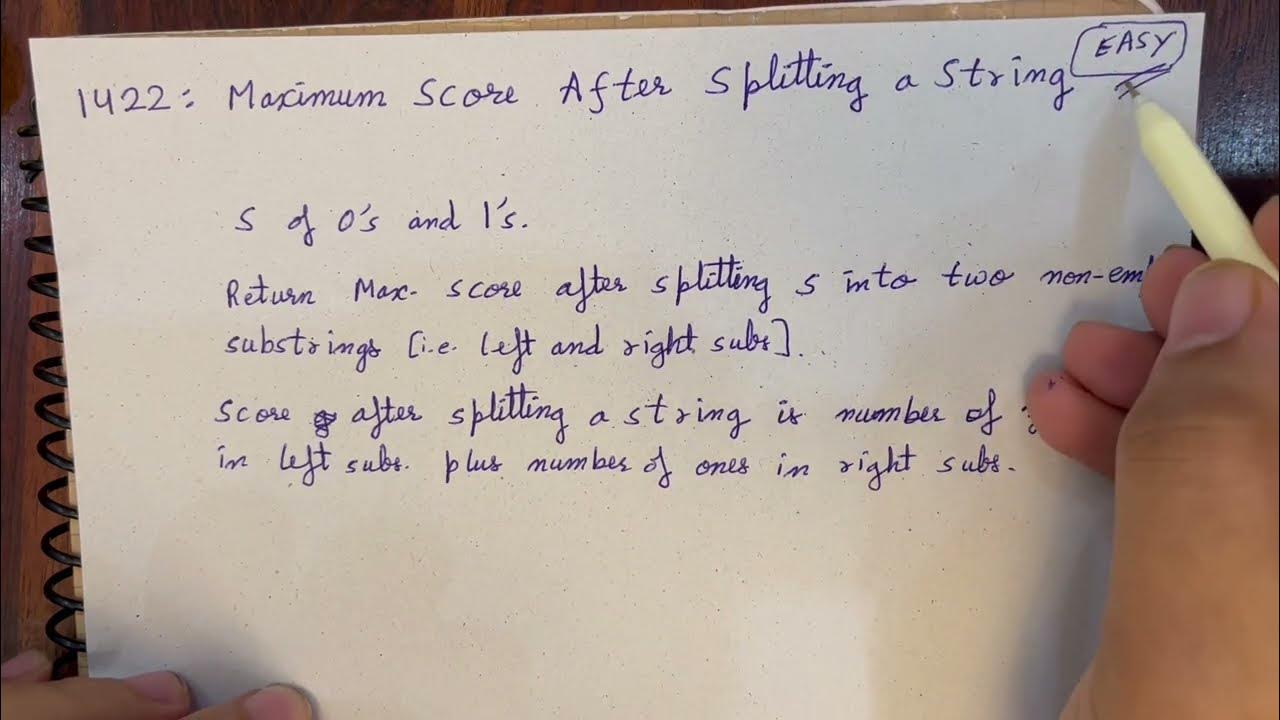 1422: Maximum Score After Splitting a String EASY
S of 0's and 1's.
Return Max. score after splitting s into two non-em
substrings [i.e. left and right subs].
Score after splitting a string is number of
in left subs. plus number of ones in right subs.